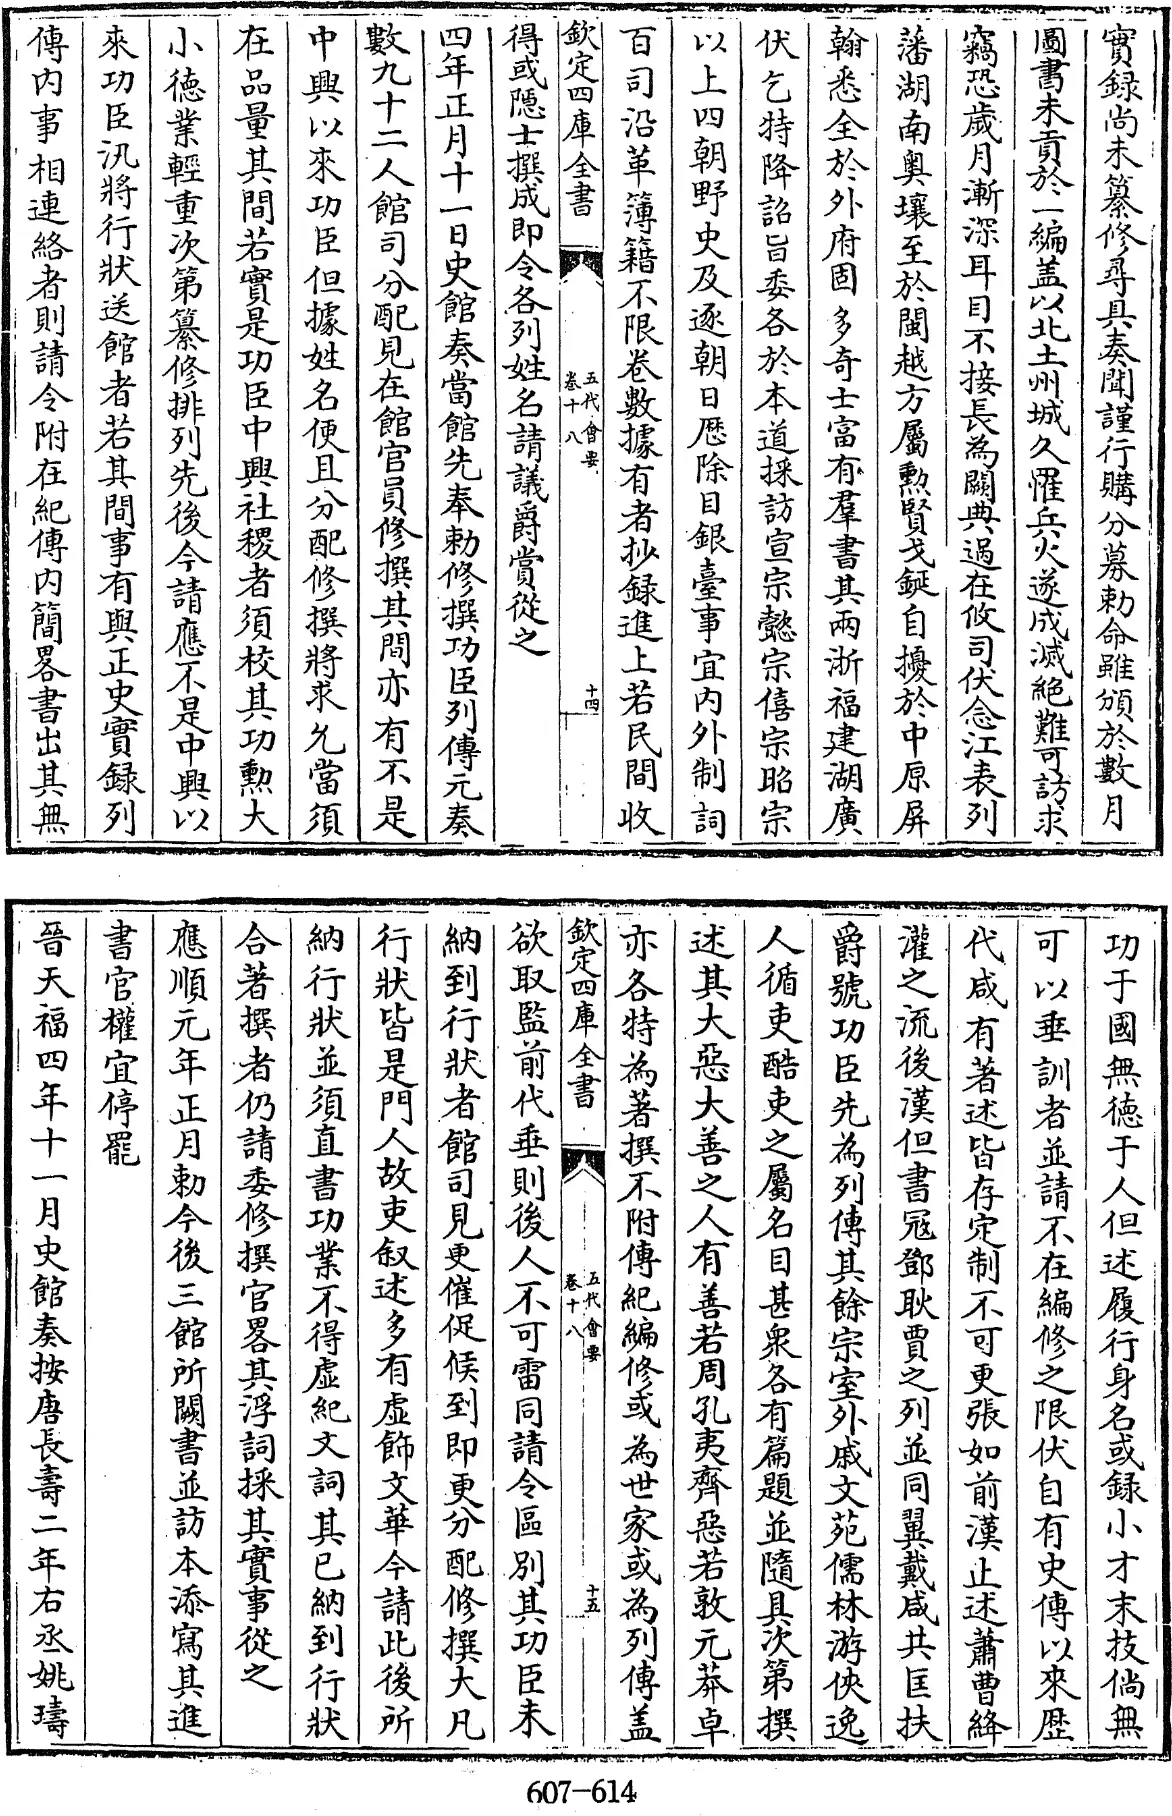 實録尚未纂修尋具奏聞謹行購分募勅命雖頒於數月
圖書未貢於一編盖以北土州城久罹兵火遂成滅絶難可訪求
竊恐歲月漸深耳目不接長為闕典過在攸司伏念江表列
藩湖南奥壤至於閩越方屬勲賢戈鋋自擾於中原屏
翰悉全於外府固多奇士富有羣書其兩浙福建湖廣
伏乞特降詔旨委各於本道採訪宣宗懿宗僖宗昭宗
以上四朝野史及逐朝日厯除目銀臺事宜内外制詞
百司沿革簿籍不限卷數據有者抄録進上若民間收
欽定四庫全書
五代會要
卷十八
十四
得或隠士撰成即令各列姓名請議爵賞從之
四年正月十一日史館奏當館先奉勅修撰功臣列傳元奏
數九十二人館司分配見在館官員修撰其間亦有不是
中興以來功臣但據姓名便且分配修撰將求允當須
在品量其間若實是功臣中興社稷者須校其功勲大
小徳業輕重次第纂修排列先後今請應不是中興以
來功臣汎將行狀送館者若其間事有與正史實録列
傳内事相連絡者則請令附在紀傳内簡畧書出其無
功于國無徳于人但述履行身名或録小才末技倘無
可以垂訓者並請不在編修之限伏自有史傳以來歴
代咸有著述皆存定制不可更張如前漢止述蕭曹絳
灌之流後漢但書冦鄧耿賈之列並同翼戴咸共匡扶
爵號功臣先為列傳其餘宗室外戚文苑儒林游俠逸
人循吏酷吏之屬名目甚衆各有篇題並隨具次第撰
述其大惡大善之人有善若周孔夷齊惡若敦元莽卓
亦各特為著撰不附傳紀編修或為世家或為列傳盖
欽定四庫全書
五代會要
卷十八
十五
欲取監前代垂則後人不可雷同請令區别其功臣未
納到行狀者館司見更催促候到即更分配修撰大凡
行狀皆是門人故吏叙述多有虚飾文華今請此後所
納行狀並須直書功業不得虚紀文詞其已納到行狀
合著撰者仍請委修撰官畧其浮詞採其實事從之
應順元年正月勅今後三館所闕書並訪本添寫其進
書官權宜停罷
晉天福四年十一月史館奏按唐長壽二年右丞姚璹
607-614